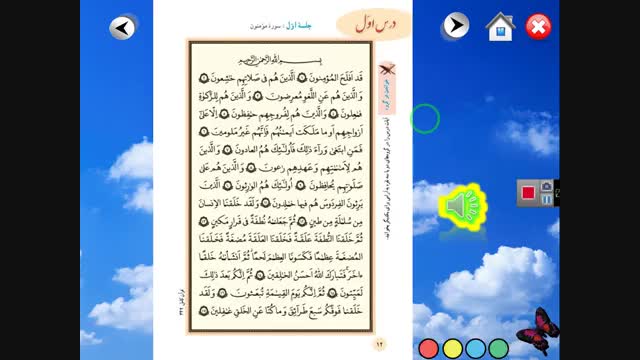 درس اوّل
جلسهٔ اوّل : سورهٔ مؤمنون
بِسمِ اللهِ الرَّحمٰنِ الرَّحيمِ
قَد اَفلَحَ المُؤمِنونَ ١ اَلَّذينَ هُم في صَلاتِهِم خٰشِعونَ ٢
وَ الَّذينَ هُم عَنِ اللَّغوِ مُعرِضونَ ٣ وَ الَّذينَ هُم لِلزَّكوٰةِ
فٰعِلونَ ٤ وَ الَّذينَ هُم لِفُروجِهِم حٰفِظونَ ٥ اِلّا عَلىٰ
اَزواجِهِم اَو ما مَلَكَت اَيمٰنُهُم فَاِنَّهُم غَيرُ مَلومينَ ٦
فَمَنِ ابتَغىٰ وَرآءَ ذٰلِكَ فَاُولٰٓئِكَ هُمُ العادونَ ٧ وَ الَّذينَ
هُم لِاَمٰنٰتِهِم وَ عَهدِهِم رٰعونَ ٨ وَ الَّذينَ هُم عَلىٰ
صَلَوٰتِهِم يُحافِظونَ ٩ اُولٰٓئِكَ هُمُ الوٰرِثونَ ١٠ اَلَّذينَ
يَرِثونَ الفِردَوسَ هُم فيها خٰلِدونَ ١١ وَ لَقَد خَلَقنَا الاِنسانَ
مِن سُلالَةٍ مِن طينٍ ١٢ ثُمَّ جَعَلناهُ نُطفَةً في قَرارٍ مَكينٍ ١٣
ثُمَّ خَلَقنَا النُّطفَةَ عَلَقَةً فَخَلَقنَا العَلَقَةَ مُضغَةً فَخَلَقنَا
المُضغَةَ عِظٰمًا فَكَسَونَا العِظٰمَ لَحمًا ثُمَّ اَنشَأناهُ خَلقًا
ءاخَرَ فَتَبارَكَ اللهُ اَحسَنُ الخٰلِقينَ ١٤ ثُمَّ اِنَّكُم بَعدَ ذٰلِكَ
لَمَيِّتونَ ١٥ ثُمَّ اِنَّكُم يَومَ القِيٰمَةِ تُبعَثونَ ١٦ وَ لَقَد
خَلَقنا فَوقَكُم سَبعَ طَرآئِقَ وَ ما كُنّا عَنِ الخَلقِ غٰفِلينَ ١٧
قرائت در گروه
١٢